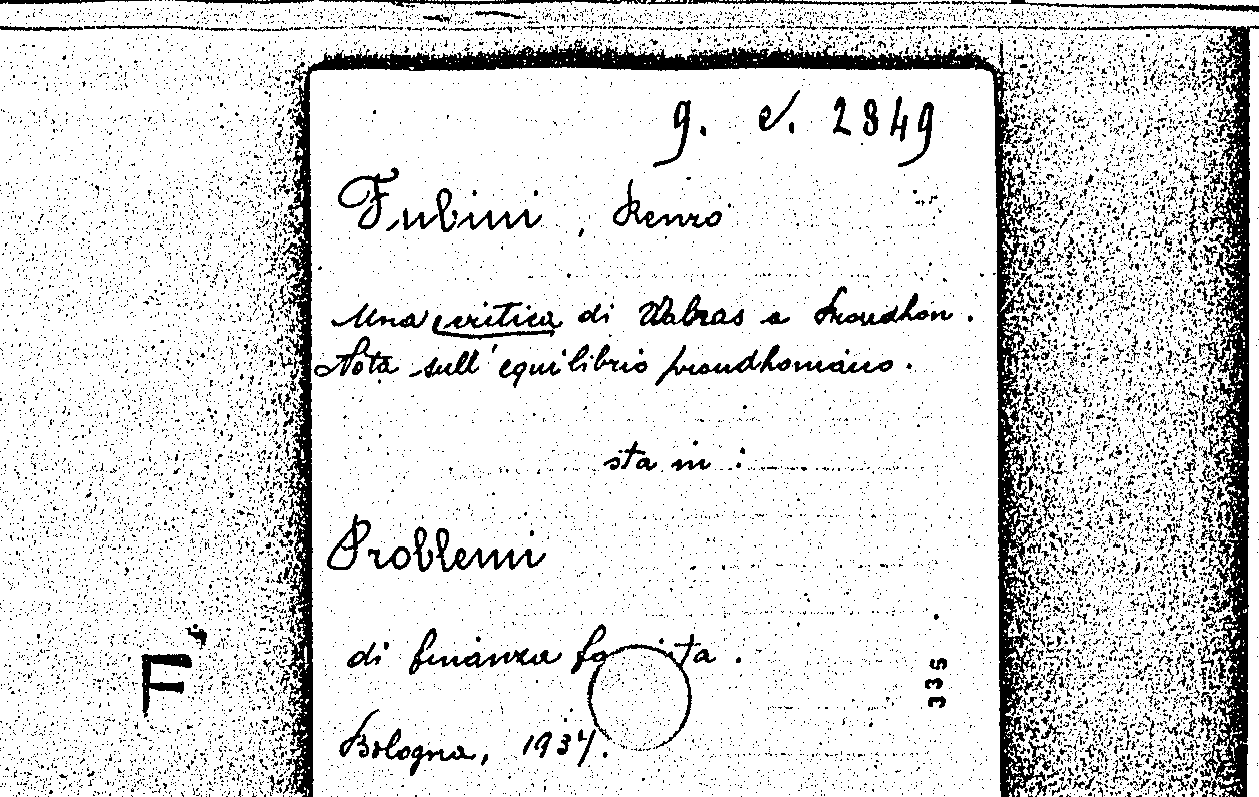 g. e. 2849
Fubini, Renzo
Una critica di Walras a Proudhon.
Nota sull'equilibrio proudhoniano.
sta in:
Problemi
di finanza
Bologna, 1937.
F
335